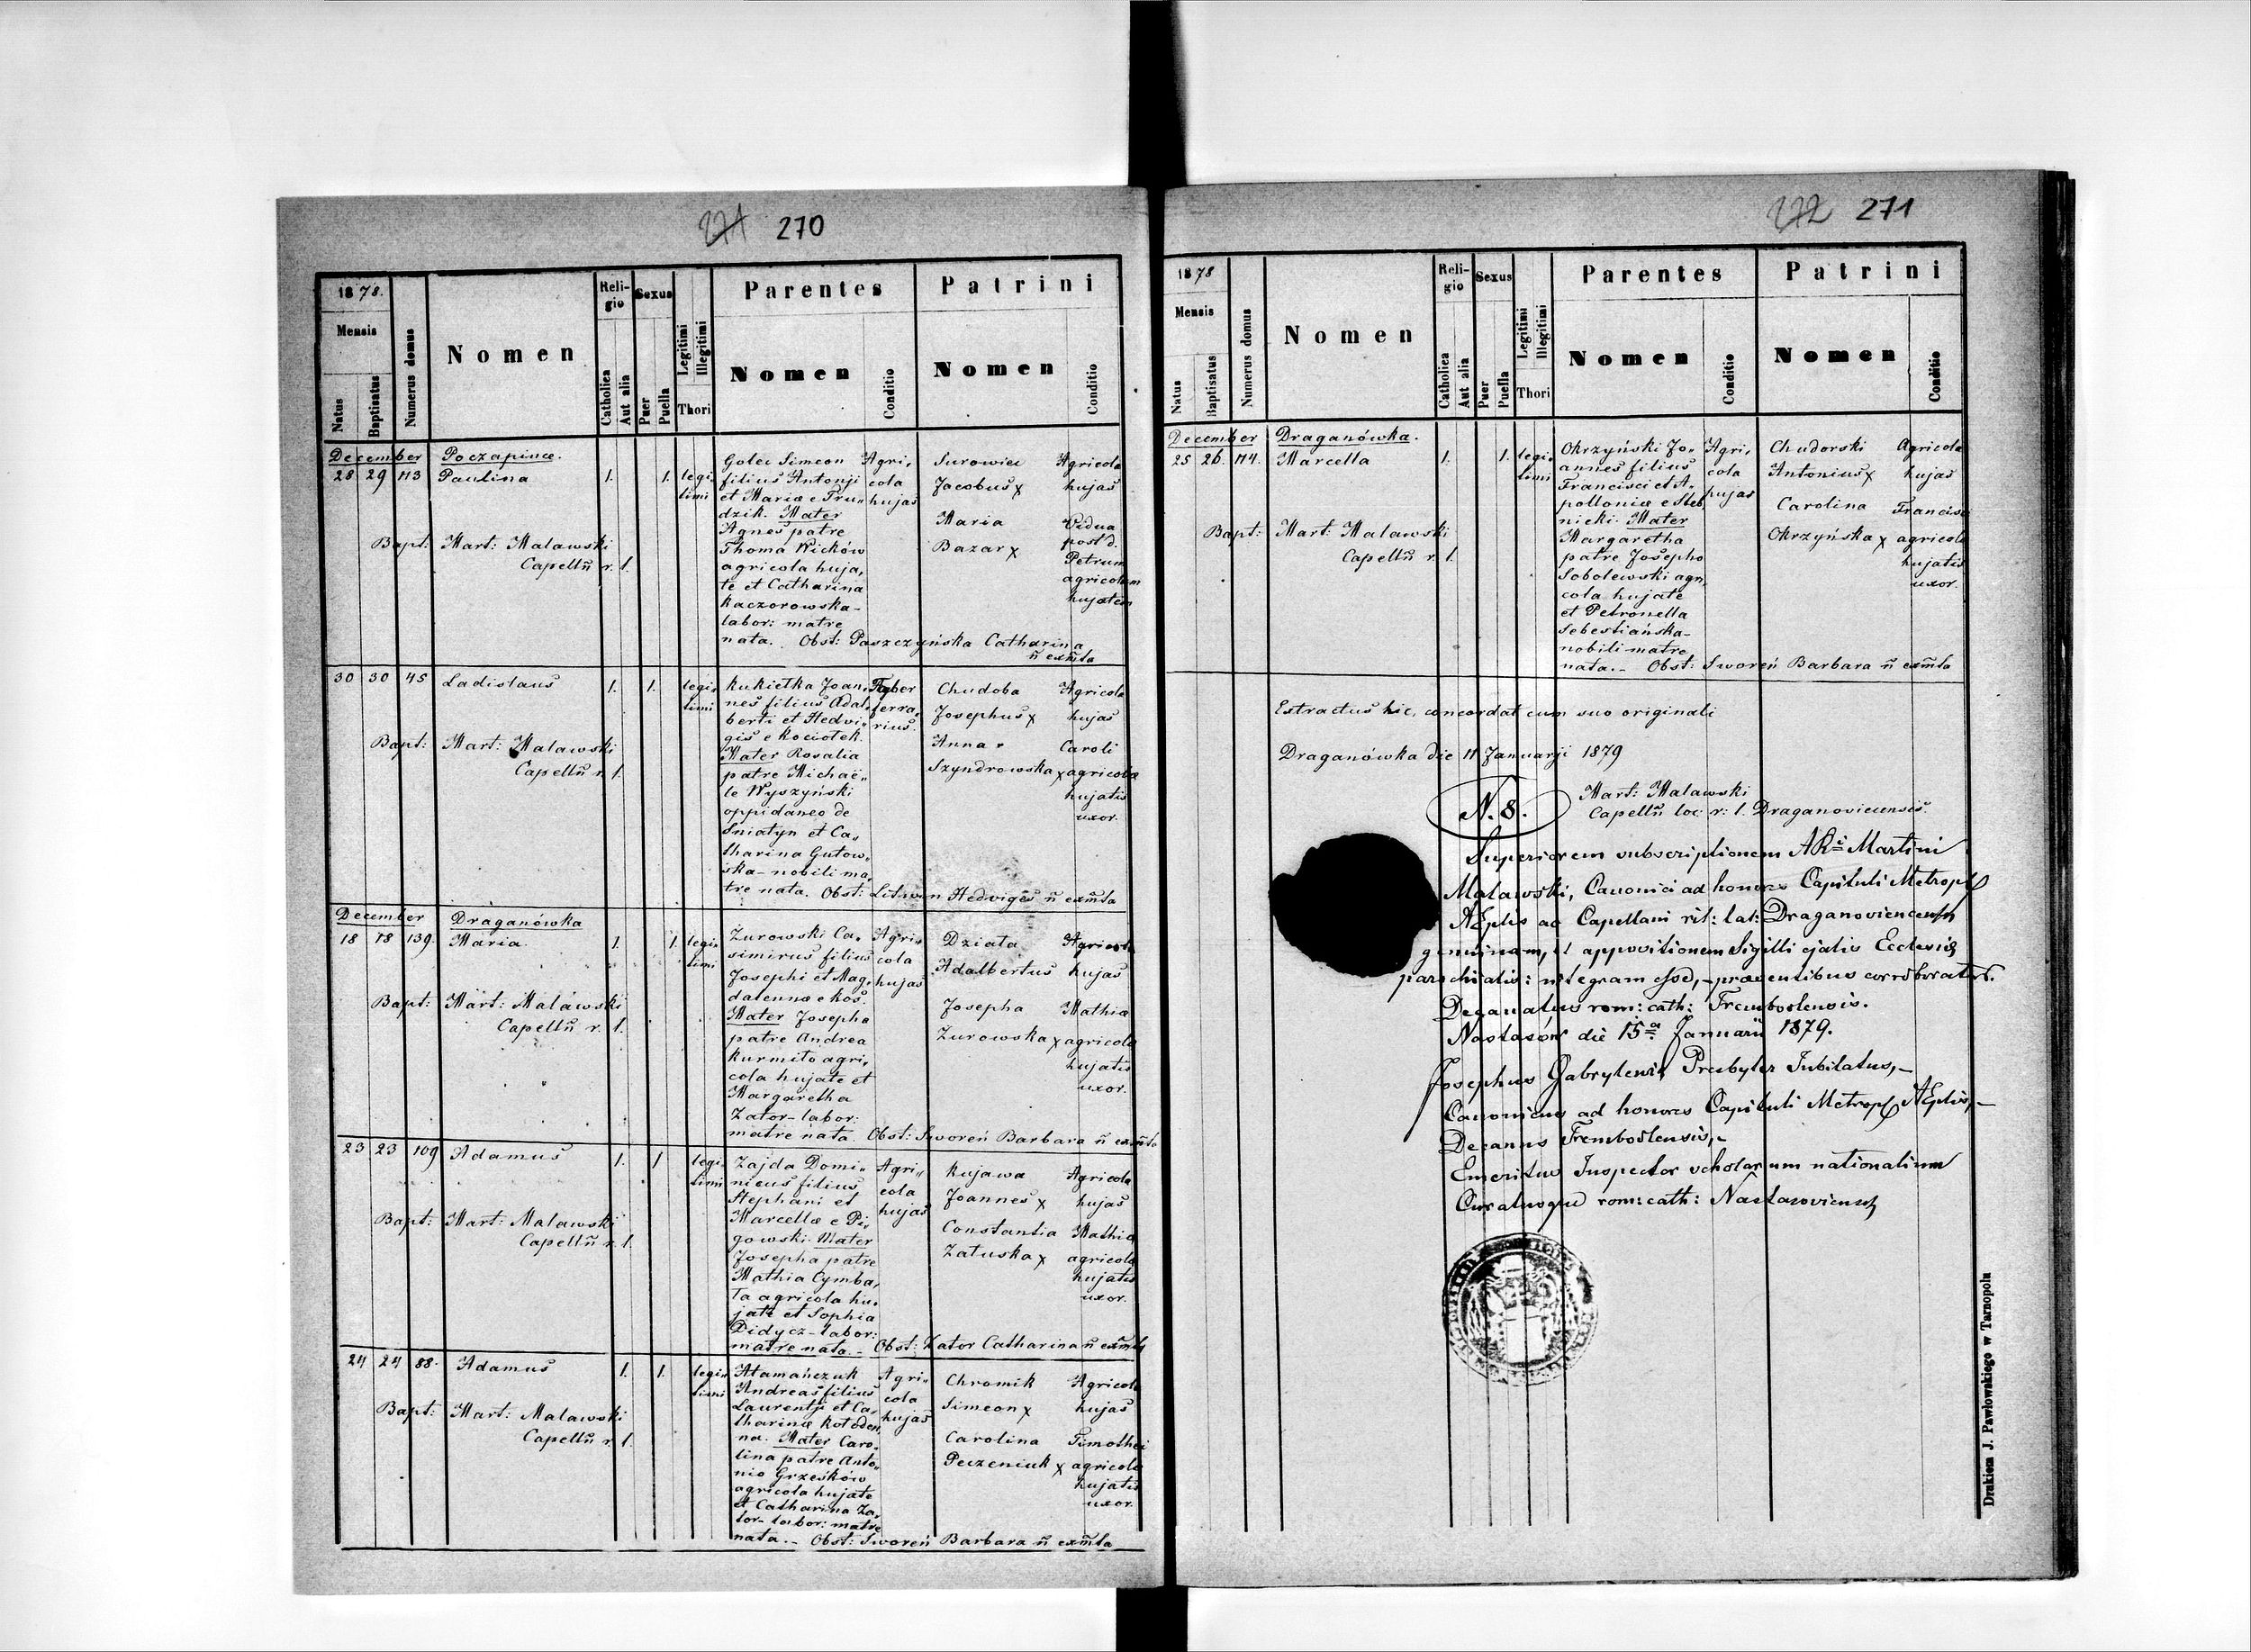 271 270
1878.
Mensis
Natus
Baptisatus
Numerus domus
Nomen
Religio
Catholica
Aut alia
Sexus
Puer
Puella
Legitimi
Illegitimi
Thori
Parentes
Nomen
Conditio
Patrini
Nomen
Conditio
December Poczapince.
28 29 113 Paulina 1. 1. legitimi
Bapt: Mart: Malawski
Capellñ r. l.
Golec Simeon
filius Antonji
et Mariæ e Pru„
dzik. Mater
Agnes patre
Thoma Wicków
agricola huja„
te et Catharina
Kaczorowska–
labor: matre
nata. Obst: Paszczyńska Catharina
ñ exm̃ta
Agri„
cola
hujas
Surowiec
Jacobus x
Maria
Bazar x
Agricola
hujas
Vidua
post d.
Petrum
agricolam
hujatem
30 30 45 Ladislaus 1. 1. legitimi
Bapt: Mart: Malawski
Capellñ r. l.
Kukiełka Joan„
nes filius Adal„
berti et Hedvi„
gis e Kociołek.
Mater Rosalia
patre Michaë„
le Wyszyński
oppidaneo de
Sniatyn et Ca„
tharina Gutow„
ska– nobili ma„
tre nata. Obst: Litwin Hedviges ñ exm̃ta
Faber
ferra„
rius.
Chudoba
Josephus x
Anna
Szyndrowska x
Agricola
hujas
Caroli
agricolæ
hujatis
uxor.
December Draganówka
18 18 139. Maria. 1. 1. legitimi
Bapt: Mart: Malawski
Capellñ r. l.
Żurowski Ca„
simirus filius
Josephi et Mag„
dalennæ e Koś.
Mater Josepha
patre Andrea
Kurmito agri„
cola hujate et
Margaretha
Zator– labor:
matre nata. Obst: Sworeń Barbara ñ exm̃ta
Agri„
cola
hujas
Działa
Adalbertus
Josepha
Żurowska x
Agricola
hujas
Mathiæ
agricolæ
hujatis
uxor.
23 23 109 Adamus 1. 1 legitimi
Bapt: Mart: Malawski
Capellñ r. l.
Zajda Domi„
nicus filius
Stephani et
Marcellæ e Pi„
gowski. Mater
Josepha patre
Mathia Cymba„
ła agricola hu„
jate et Sophia
Didycz– labor:
matre nata.– Obst: Zator Catharina ñ exm̃ta
Agri„
cola
hujas
Kujawa
Joannes x
Constantia
Załuska x
Agricola
hujas
Mathiæ
agricolæ
hujatis
uxor.
24 24 88. Adamus 1. 1. legitimi
Bapt: Mart: Malawski
Capellñ r. l.
Atamańczuk
Andreas filius
Laurentji et Ca„
tharinæ Kołoden„
na. Mater Caro„
lina patre Anto„
nio Grześków
agricola hujate
et Catharina Za„
tor– labor: matre
nata.– Obst: Sworeń Barbara ñ exm̃ta
Agri„
cola
hujas
Chromik
Simeon x
Carolina
Peczeniuk x
Agricola
hujas
Timothei
agricolæ
hujatis
uxor.
272 271
1878
Mensis
Natus
Baptisatus
Numerus domus
Nomen
Religio
Catholica
Aut alia
Sexus
Puer
Puella
Legitimi
Illegitimi
Thori
Parentes
Nomen
Conditio
Patrini
Nomen
Conditio
December Draganówka.
25 26. 114. Marcella 1. 1. legitimi
Bapt: Mart: Malawski
Capellñ r. l.
Okrzyński Jo„
annes filius
Francisci et A„
polloniæ e Steb„
nicki. Mater
Margaretha
patre Josepho
Sobolewski agri„
cola hujate
et Petronella
Sebestiańska–
nobili matre
nata.– Obst: Sworeń Barbara ñ exm̃ta
Agri„
cola
hujas
Chudorski
Antonius x
Carolina
Okrzyńska x
Agricola
hujas
Francisci
agricolæ
hujatis
uxor.
Extractus hic, concordat cum suo originali
Draganówka die 11 Januarji 1879
Mart: Malawski
Capellñ loc: r: l. Draganoviecensis.
N. 8.
Superiorem subscriptionem Martini
Malawski, Canonici ad honores Capituli Metropol
AEplis ac Capellani rit: lat: Draganoviencensis
genuinam, et appositionem Sigilli ejatis Ecclesiæ
parochialis: integram esse, – præsentibus corroboratur.
Decanatus rom: cath: Trembovlensis.
Nastasów die 15ª Januarii 1879.
Josephus Gabrylewicz Presbyter Jubilatus,–
Canonicus ad honores Capituli Metropol AEplis,–
Decanus Trembovlensis,–
Emeritus Inspector scholarum nationalium
Curatusque rom: cath: Nastasoviensis
Drukiem J. Pawłowskiego w Tarnopolu